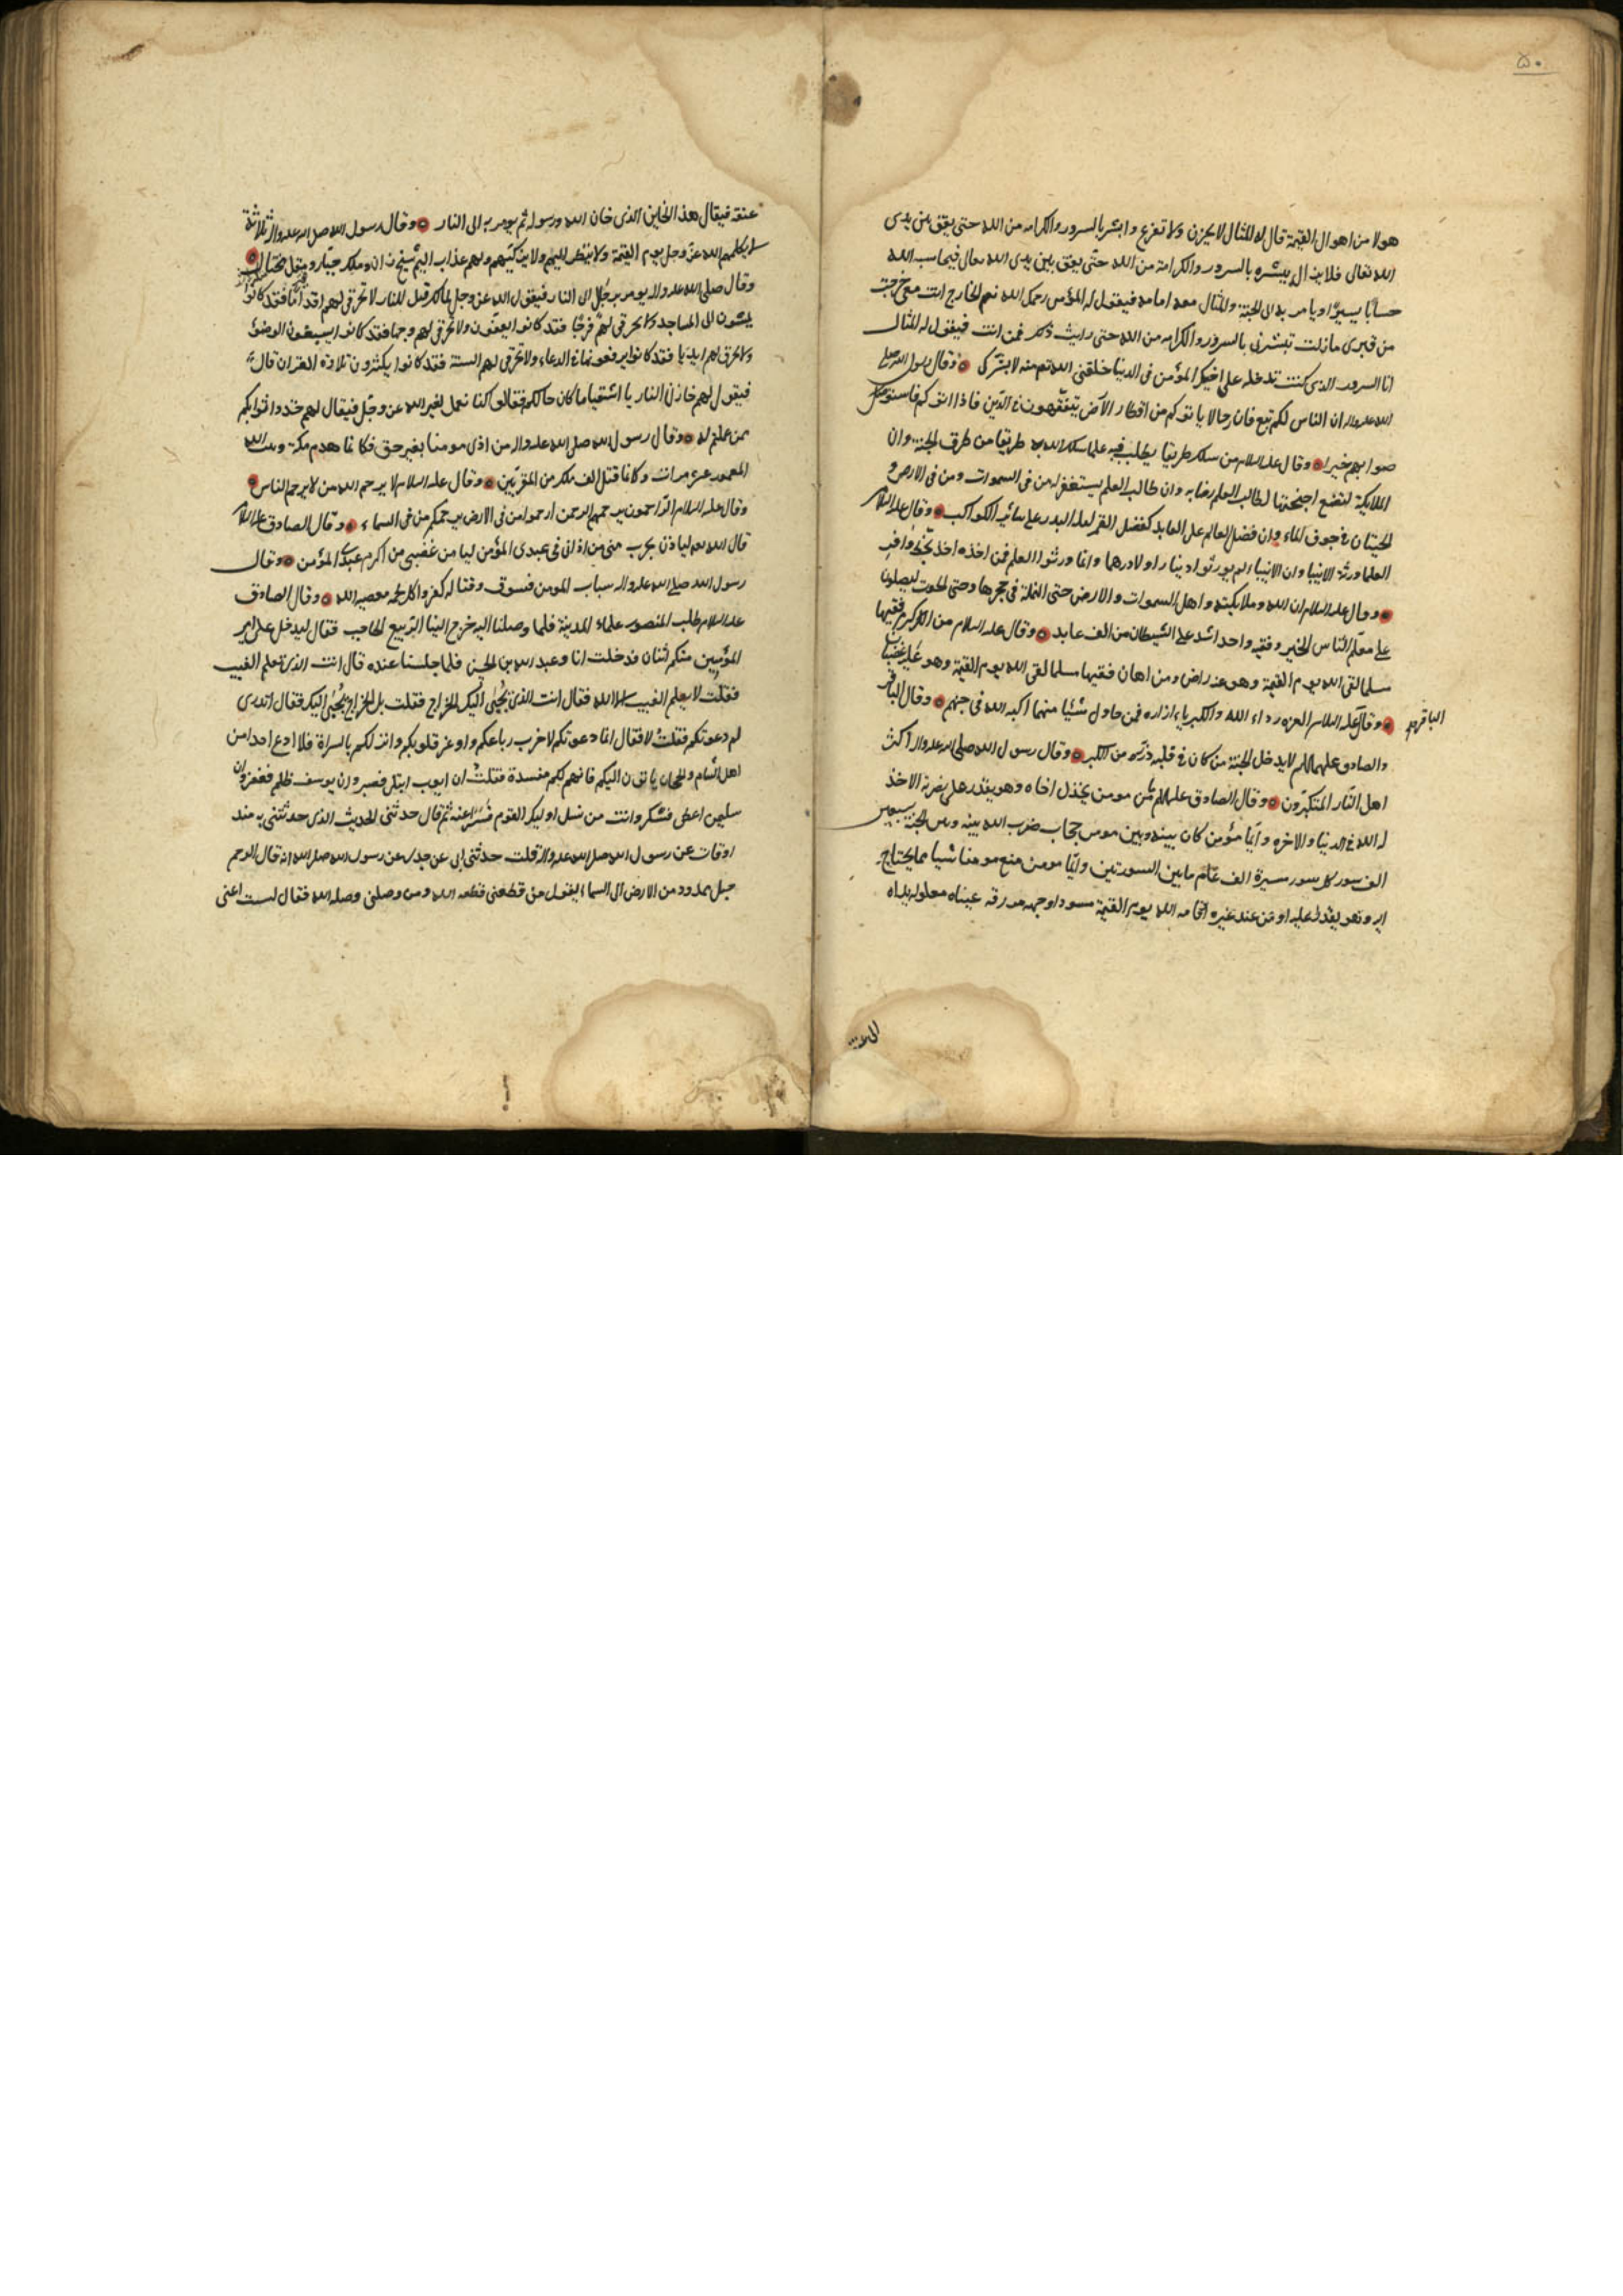 ٥٠
هولا من اهوال القيمة قال له المثال لا تحزن ولا تفزع وابشر بالسرور والكرامه من الله حتى يقف بين يدى
الله تعالى فلا يزال يبشره بالسرور والكرامة من الله حتى يقف بين يدى الله تعالى فيحاسبه الله
حسابًا يسيرًا ويامر به الى الجنة والمثال معه امامه فيقول له المؤمن رحمك الله نعم الخارج انت معى خرجت
من قبرى مازلت تبشرنى بالسرور والكرامه من الله حتى رايت ذلك فمن انت فيقول له المثال
انا السرور الذى كنت تدخله على اخيك المؤمن فى الدنيا خلقنى الله منه لابشرك وقال رسول الله صلى
الله عليه واله ان الناس لكم تبع فان رجالا ياتوكم من اقطار الارض يتفقهون فى الدين فاذا اتوكم فاستو
صوا بهم خيرا وقال عليه السلام من سلك طريقا يطلب فيه علما سلك الله به طريقا من طرق الجنة وان
الملايكة لتضع اجنحتها لطالب العلم رضا به وان طالب العلم يستغفر له من فى السموات ومن فى الارض و
الحيتان فى جوف الماء وان فضل العالم على العابد كفضل القمر ليله البدر على سائر الكواكب وقال عليه السلام
العلما ورثة الانبيا وان الانبياء لم يورثوا دينارا ولا درهما وانما ورثوا العلم فمن اخذه اخذ بحظ وافر
وقال عليه السلام ان الله وملايكته واهل السموات والارض حتى النملة فى جحرها وحتى الحوت ليصلون
على معلم الناس الخير وفقيه واحد اشد على الشيطان من الف عابد وقال عليه السلام من اكرم فقيها
مسلما لقى الله يوم القيمة وهو عنه راض ومن اهان فقيها مسلما لقى الله يوم القيمة وهو عليه غضبان
وقال عليه السلام العز رداء الله والكبرياء ازاره فمن حاول شيئا منهما اكبه الله فى جهنم وقال الباقر
الباقر
والصادق عليهما السلم لا يدخل الجنة من كان فى قلبه ذره من الكبر وقال رسول الله صلى الله عليه واله اكثر
اهل النار المتكبرون وقال الصادق عليه السلم ما من مومن يخذل اخاه وهو يقدر على نصرته الا خذ
له الله فى الدنيا والاخره وايما مؤمن كان بينه وبين مومن حجاب ضرب الله بينه وبين الجنة سبعين
الف سور كل سور مسيرة الف عام ما بين السورتين وايما مومن منع مومنا شيا مما يحتاج
اليه وهو يقدر عليه او من عند غيره اقامه الله يوم القيمة مسودا وجهه مزرقه عيناه مغلوله يداه
الى عنقه
عنقه فيقال هذا الخاين الذى خان الله ورسوله ثم يومر به الى النار وقال رسول الله صلى الله عليه واله ثلاثة
لا يكلمهم الله عز وجل يوم القيمة ولا ينظر اليهم ولا يزكيهم ولهم عذاب اليم شيخ زان وملك جبار ومقل مختال
وقال صلى الله عليه واله يومر برجال الى النار فيقول الله عز وجل لمالك قل للنار لا تحرقى لهم اقداما فقد كانوا
يمشون الى المساجد ولا تحرقى لهم فرجًا فقد كانوا يعفون ولا تحرقى لهم وجها فقد كانوا يسبغون الوضوء
ولا تحرقى لهم ايديا فقد كانوا يرفعونها فى الدعاء ولا تحرقى لهم السنة فقد كانوا يكثرون تلاوه القران قال
فيقول لهم خازن النار يا اشقيا ما كان حالكم فقالوا كنا نعمل لغير الله عز وجل فيقال لهم خذوا ثوابكم
ممن عملتم له وقال رسول الله صلى الله عليه واله من اذى مومنا بغير حق فكانما هدم مكة وبيت الله
المعمور عشر مرات وكانما قتل الف ملك من المقربين وقال عليه السلام لا يرحم الله من لا يرحم الناس
وقال عليه السلام الراحمون يرحمهم الرحمن ارحموا من فى الارض يرحمكم من فى السماء وقال الصادق عليه السلام
قال الله تعالى لياذن بحرب منى من اذانى فى عبدى المؤمن ليامن غضبى من اكرم عبدى المؤمن وقال
رسول الله صلى الله عليه واله سباب المومن فسوق وقتاله كفر واكل لحمه معصيه الله وقال الصادق
عليه السلام طلب المنصور علماء المدينة فلما وصلنا اليه خرج الينا الربيع الحاجب فقال ليدخل على امير
المؤمنين منكم اثنان فدخلت انا وعبد الله بن الحسن فلما جلسنا عنده قال انت الذى تعلم الغيب
فقلت لا يعلم الغيب الا الله فقال انت الذى يجبى اليك الخراج فقلت بل الخراج يجبى اليك فقال اتدرى
لم دعوتكم فقلت لا فقال انما دعوتكم لاخرب رباعكم واوغر قلوبكم وانزلكم بالسراة فلا ادع احدا من
اهل الشام والحجاز ياتون اليكم فانهم لكم مفسدة فقلت ان ايوب ابتلى فصبر وان يوسف ظلم فغفر وان
سليمن اعطى فشكر وانت من نسل اوليك القوم فسرى عنه ثم قال حدثنى الحديث الذى حدثتنى به منذ
اوقات عن رسول الله صلى الله عليه واله قلت حدثنى ابى عن جدى عن رسول الله صلى الله انه قال الرحم
حبل ممدود من الارض الى السماء يقول من قطعنى قطعه الله ومن وصلنى وصله الله فقال لست اعنى